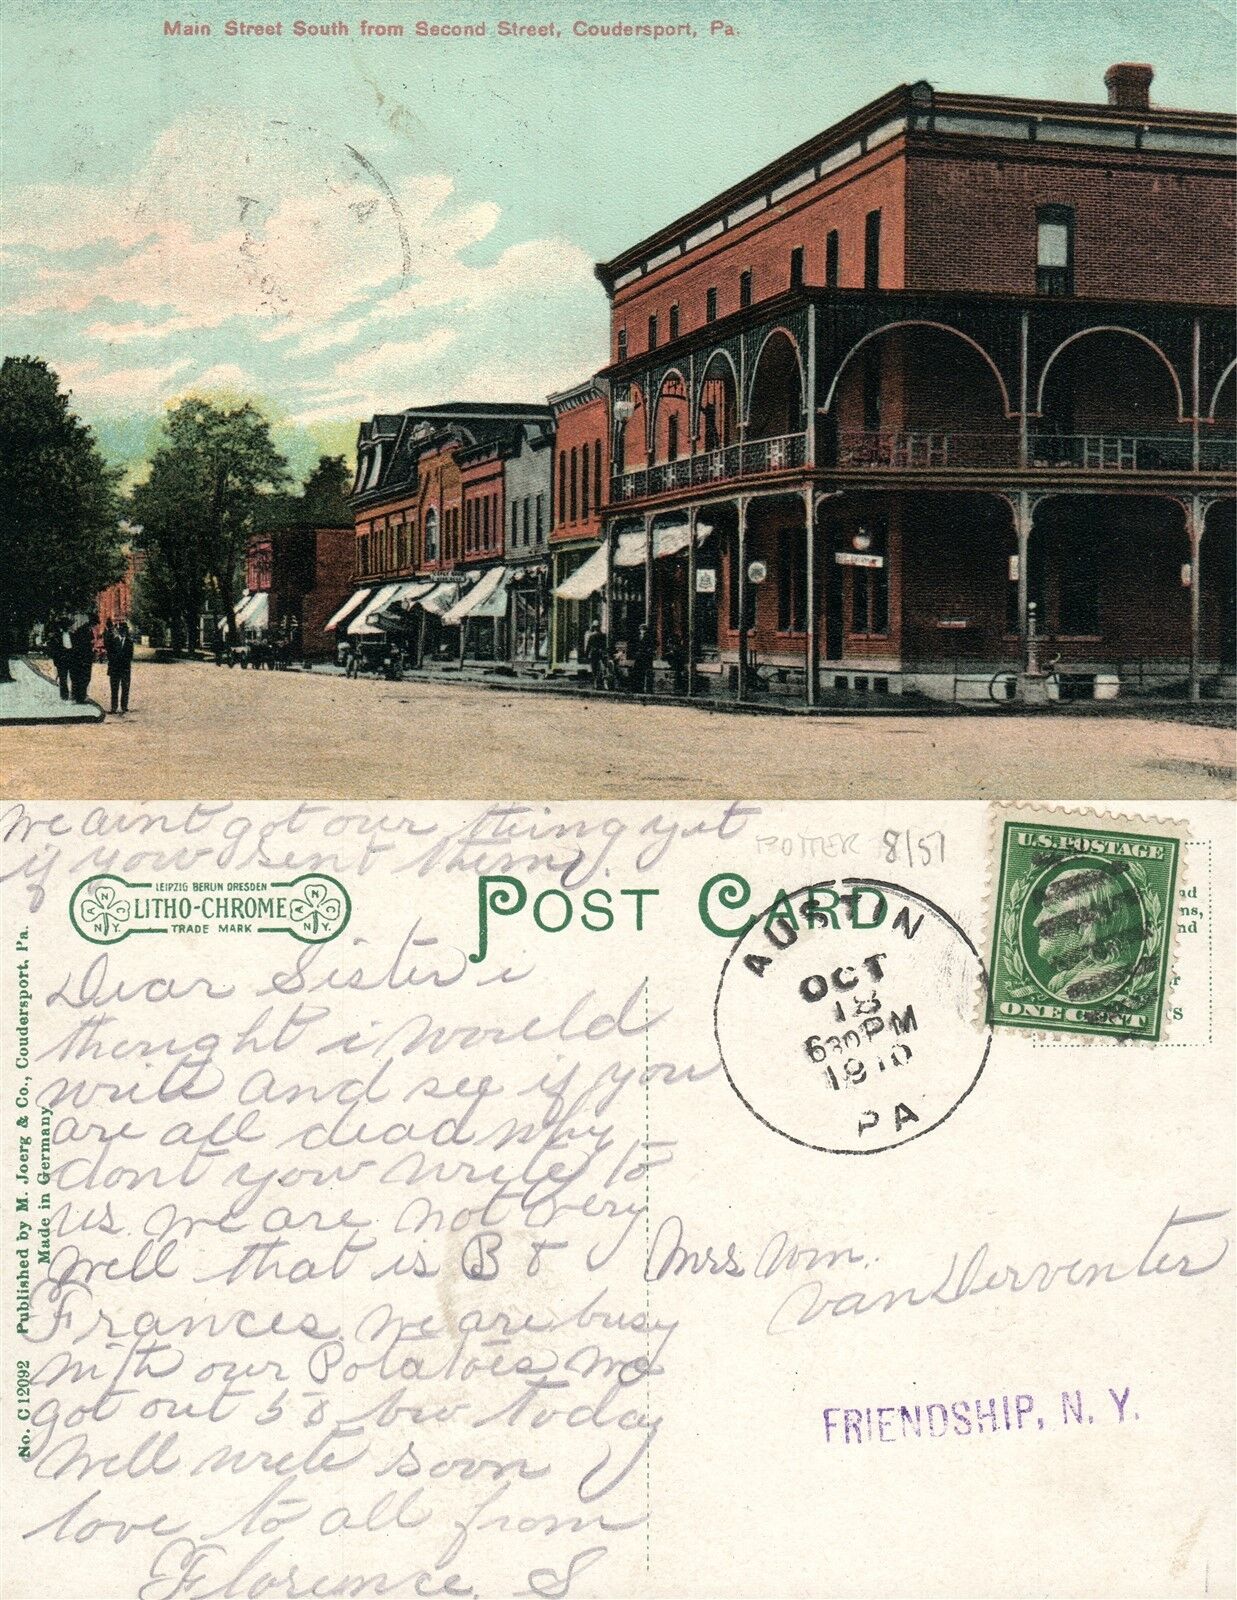 Main Street South from Second Street, Coudersport, Pa.
we aint got our thing yet
if your sent them.
POTTER 8/57
LEIPZIG BERLIN DRESDEN
LITHO-CHROME
TRADE MARK
POST CARD
AUSTIN
OCT
18
630PM
1910
PA
U.S. POSTAGE
ONE CENT
Dear Sister i
thought i would
write and see if you
are all dead why
dont your write to
us. we are not very
well that is B &
Frances. we are busy
with our Potatoes we
got out 50 bu today
Well write soon
love to all from
Florence. S
Mrs Wm.
vanDerventer
FRIENDSHIP, N. Y.
No. C 12092 Published by M. Joerg & Co., Coudersport, Pa.
Made in Germany